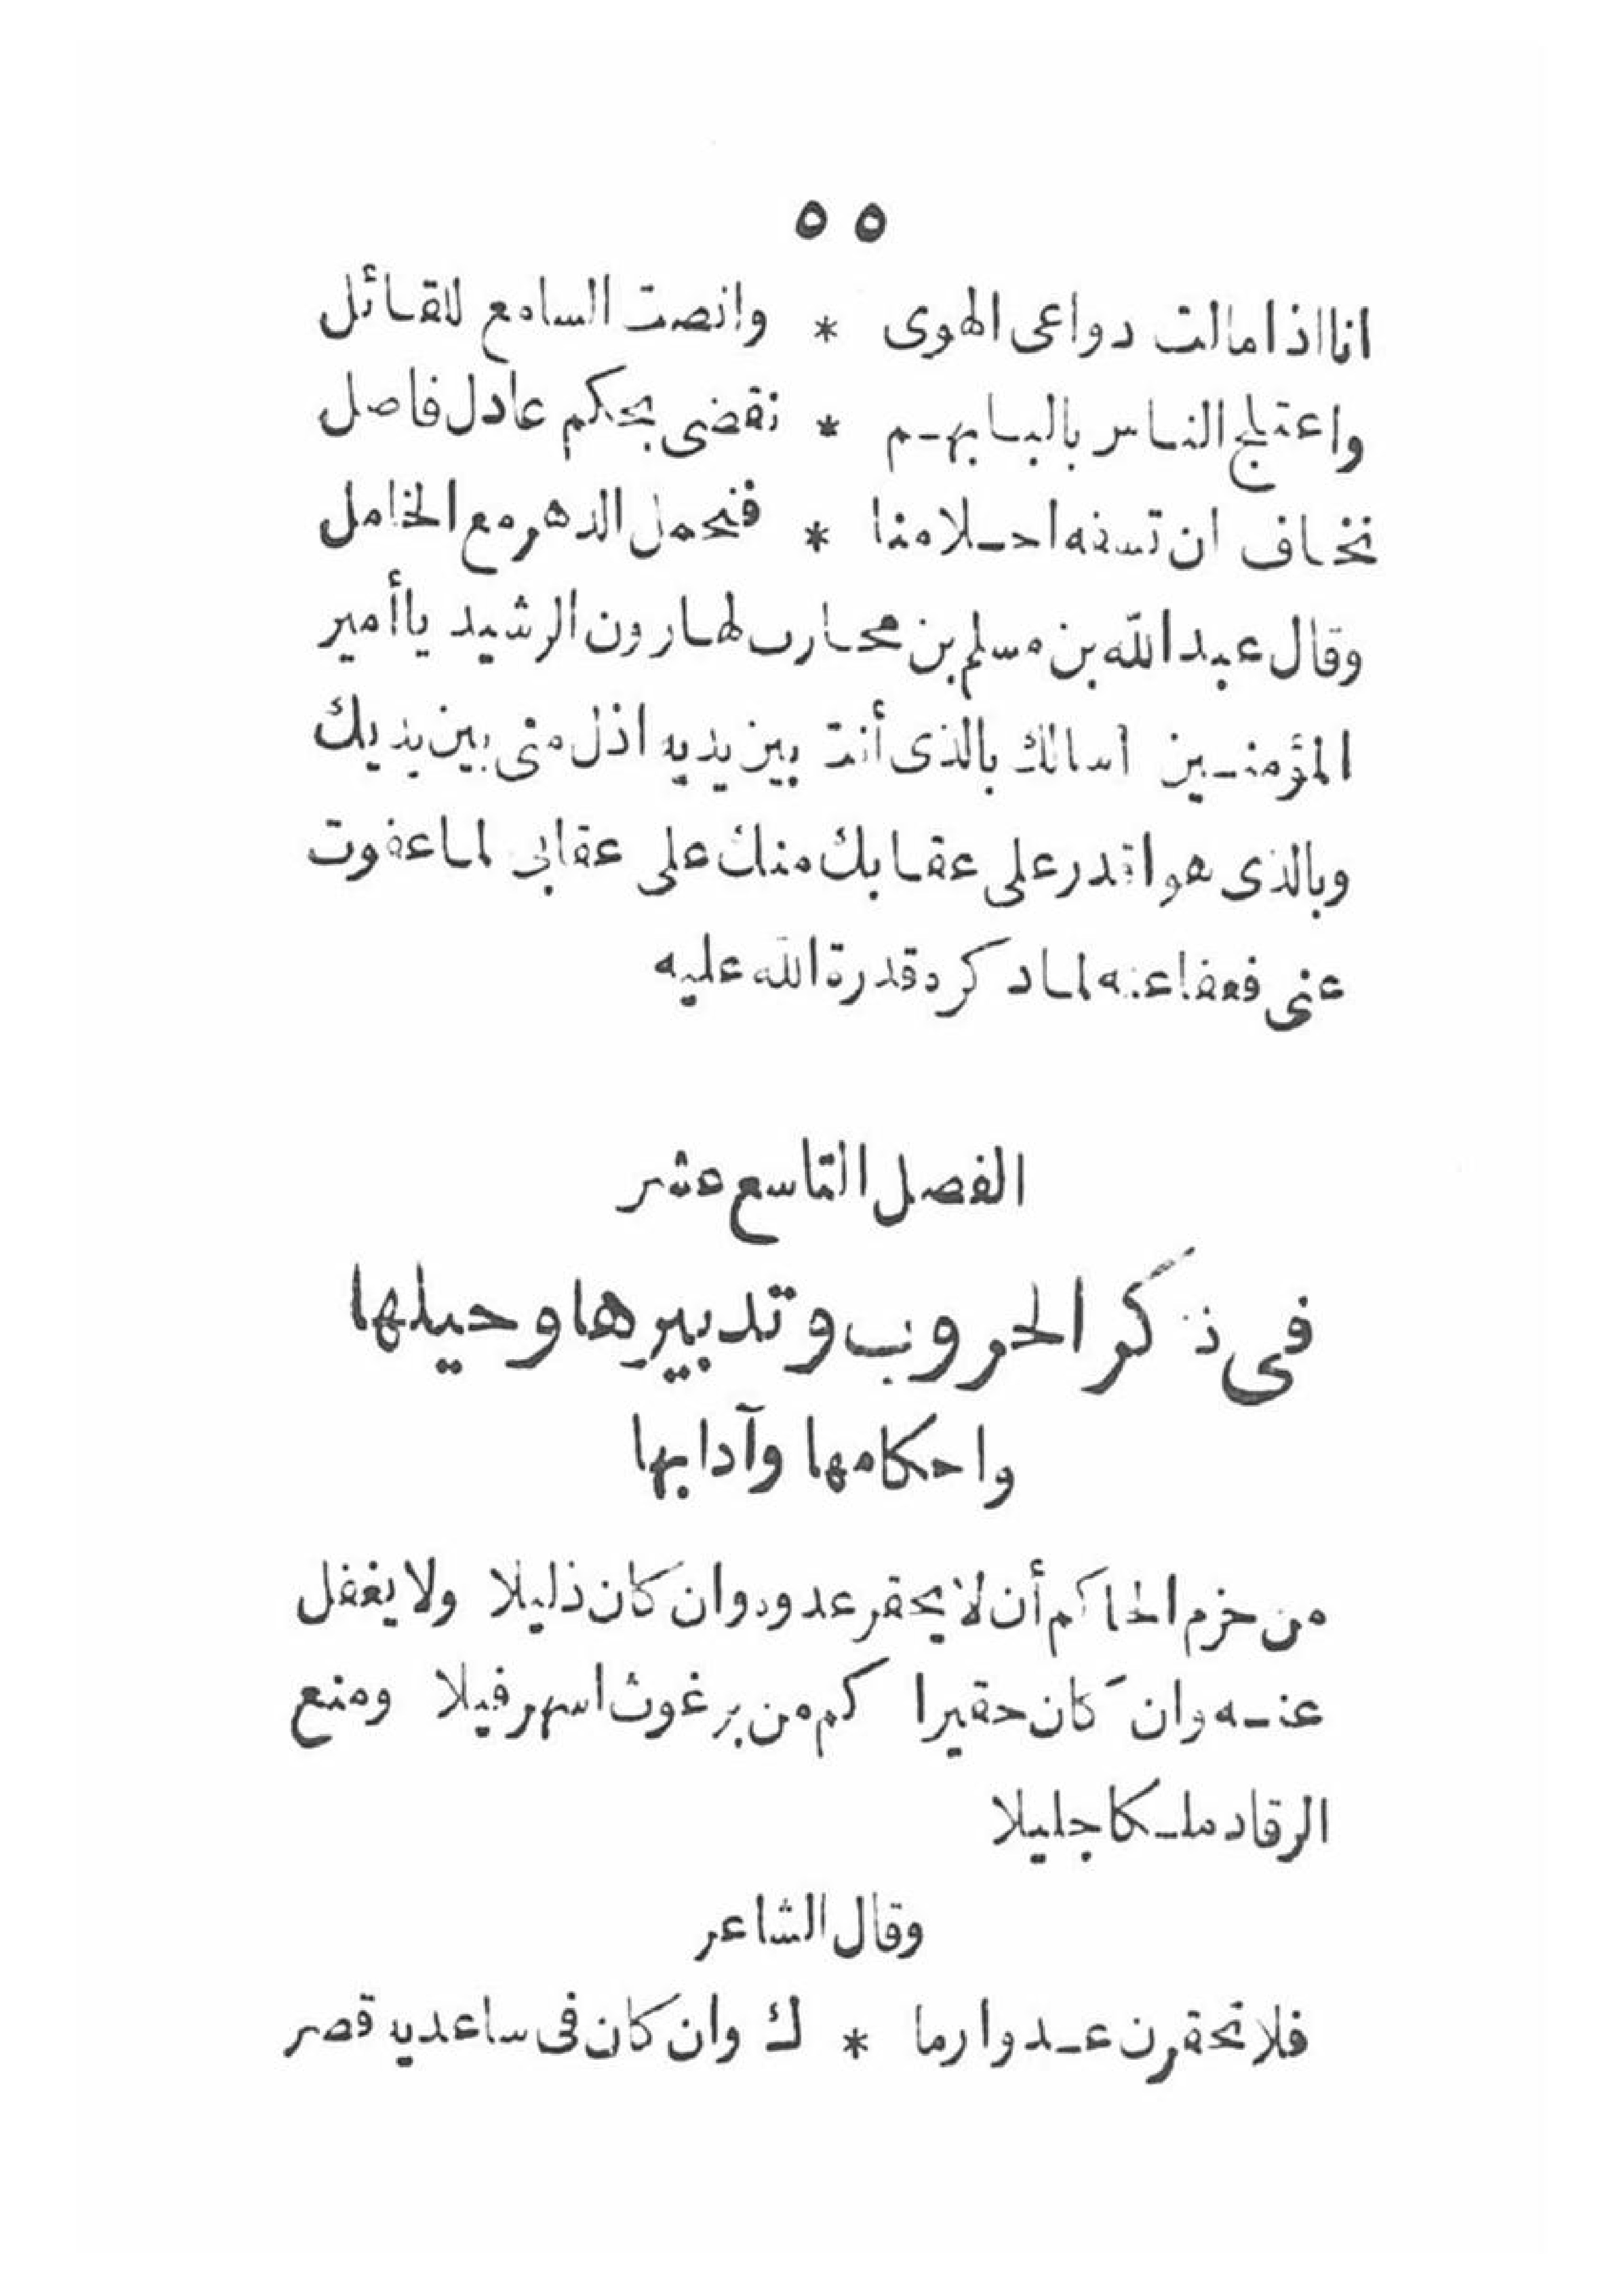 ٥٥
انا اذا مالت دواعى الهوى * وانصت السامع للقائل
واعتلج الناس بالبابهم * نقضى بحكم عادل فاصل
نخاف ان تسفه احلامنا * فنحمل الدهر مع الخامل
وقال عبد الله بن مسلم بن محارب لهارون الرشيد يا أمير
المؤمنين اسالك بالذى أنت بين يديه اذل منى بين يديك
وبالذى هو اقدر على عقابك منك على عقابى لما عفوت
عنى فعفا عنه لما دكره قدرة الله عليه
الفصل التاسع عشر
فى ذكر الحروب وتدبيرها وحيلها
واحكامها وآدابها
من حزم الحاكم أن لا يحقر عدوه وان كان ذليلا ولا يغفل
عنه وان كان حقيرا كم من برغوث اسهر فيلا ومنع
الرقاد ملكا جليلا
وقال الشاعر
فلا تحقرن عدوا رما * ك وان كان فى ساعديه قصر